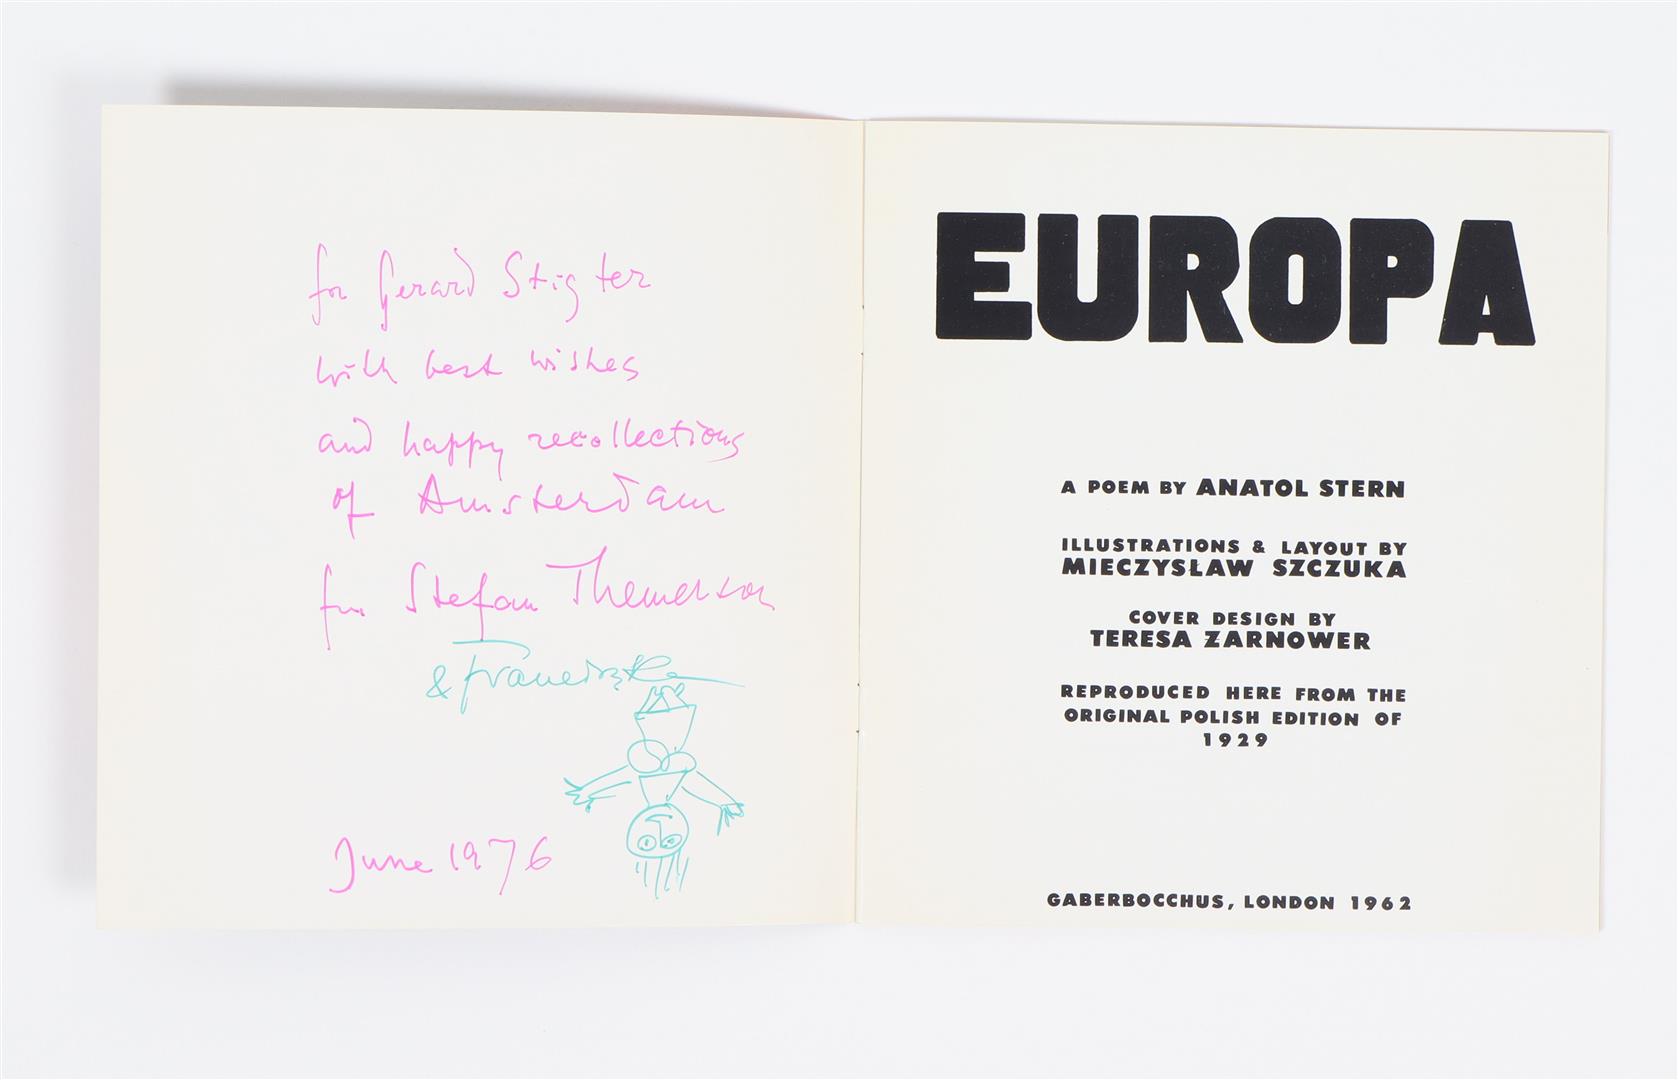 for Gerard Stigter
with best wishes
and happy recollections
of Amsterdam
from Stefan Themerson
& Franciszka
June 1976
EUROPA
A POEM BY ANATOL STERN
ILLUSTRATIONS & LAYOUT BY
MIECZYSŁAW SZCZUKA
COVER DESIGN BY
TERESA ŻARNOWER
REPRODUCED HERE FROM THE
ORIGINAL POLISH EDITION OF
1929
GABERBOCCHUS, LONDON 1962